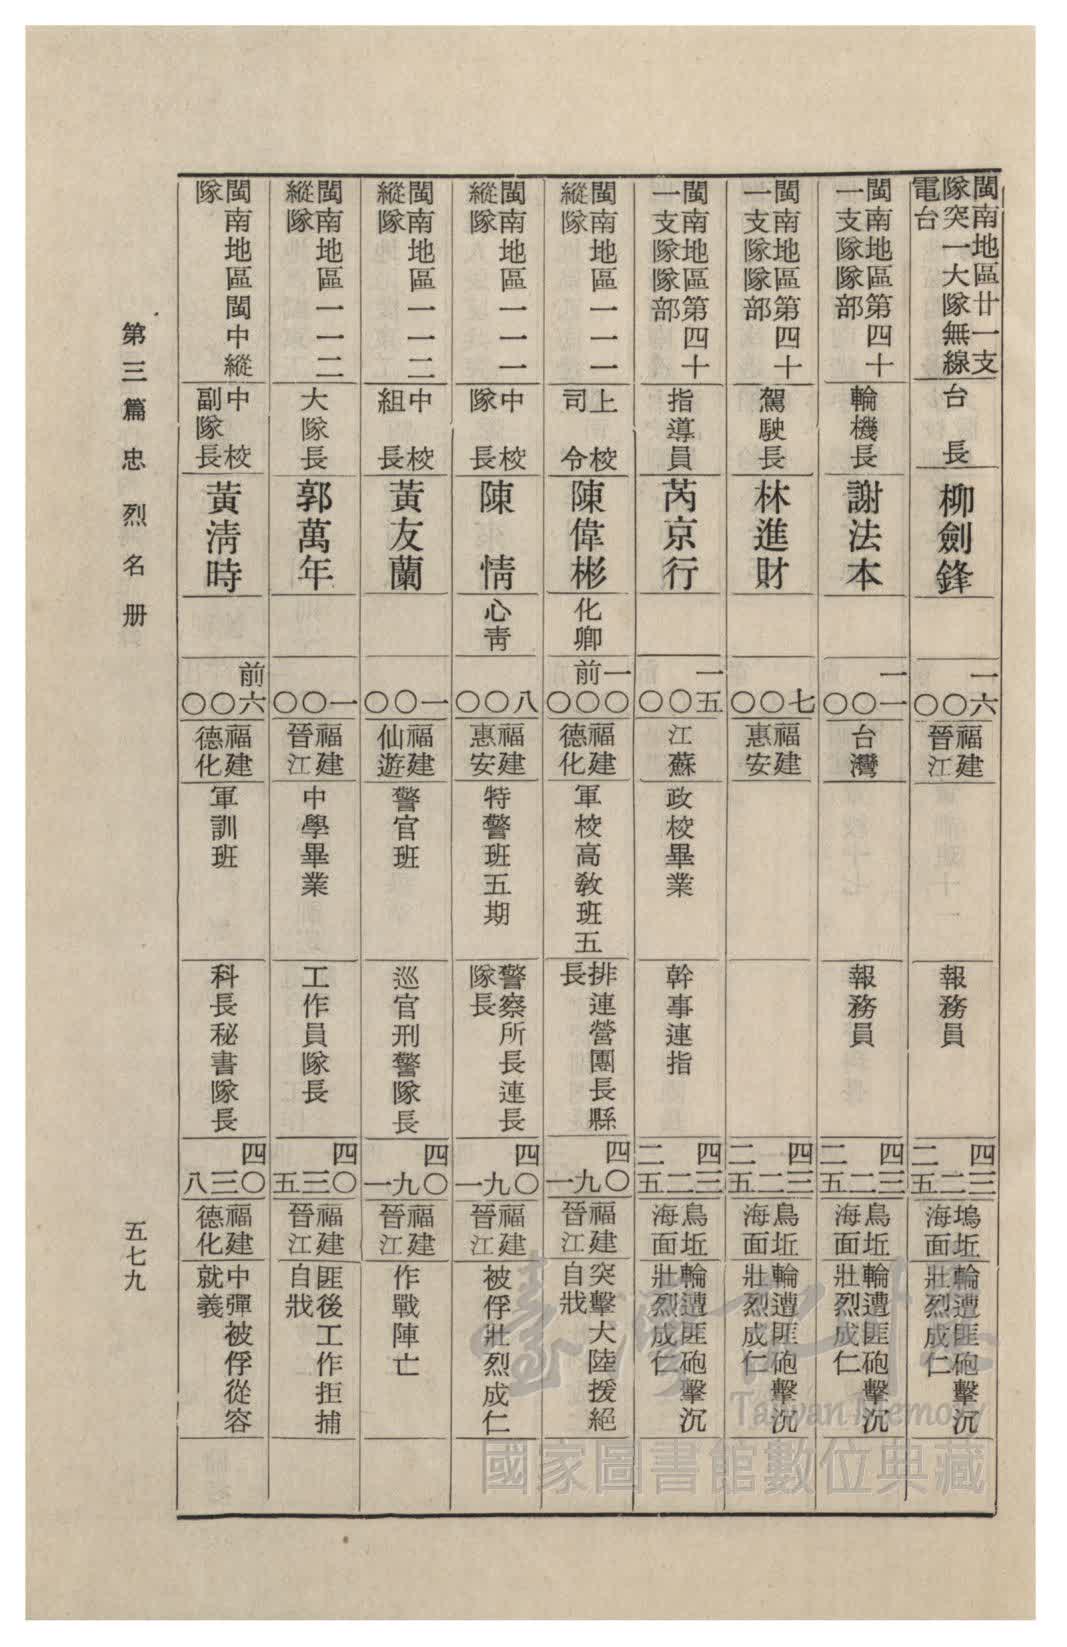 閩南地區廿一支
隊突一大隊無線
電台
台長
柳劍鋒
一六
〇〇
福建
晉江
報務員
四三
二二五
塢坵
海面
輪遭匪砲擊沉
壯烈成仁
閩南地區第四十
一支隊隊部
輪機長
謝法本
一一
〇〇
台灣
報務員
四三
二二五
烏坵
海面
輪遭匪砲擊沉
壯烈成仁
閩南地區第四十
一支隊隊部
駕駛長
林進財
七
〇〇
福建
惠安
四三
二二五
烏坵
海面
輪遭匪砲擊沉
壯烈成仁
閩南地區第四十
一支隊隊部
指導員
芮京行
一五
〇〇
江蘇
政校畢業
幹事連指
四三
二二五
烏坵
海面
輪遭匪砲擊沉
壯烈成仁
閩南地區一一一
縱隊
上校
司令
陳偉彬
化卿
前一〇
〇〇
福建
德化
軍校高教班五
排連營團長縣
長
四〇
九一
福建
晉江
突擊大陸援絕
自戕
閩南地區一一一
縱隊
中校
隊長
陳情
心靑
八
〇〇
福建
惠安
特警班五期
警察所長連長
隊長
四〇
九一
福建
晉江
被俘壯烈成仁
閩南地區一一二
縱隊
中校
組長
黃友蘭
一
〇〇
福建
仙遊
警官班
巡官刑警隊長
四〇
九一
福建
晉江
作戰陣亡
閩南地區一一二
縱隊
大隊長
郭萬年
一
〇〇
福建
晉江
中學畢業
工作員隊長
四〇
三五
福建
晉江
匪後工作拒捕
自戕
閩南地區閩中縱
隊
中校
副隊長
黃清時
前六
〇〇
福建
德化
軍訓班
科長秘書隊長
四〇
三八
福建
德化
中彈被俘從容
就義
第三篇 忠烈名册
五七九
臺灣記憶
Taiwan Memory
國家圖書館數位典藏